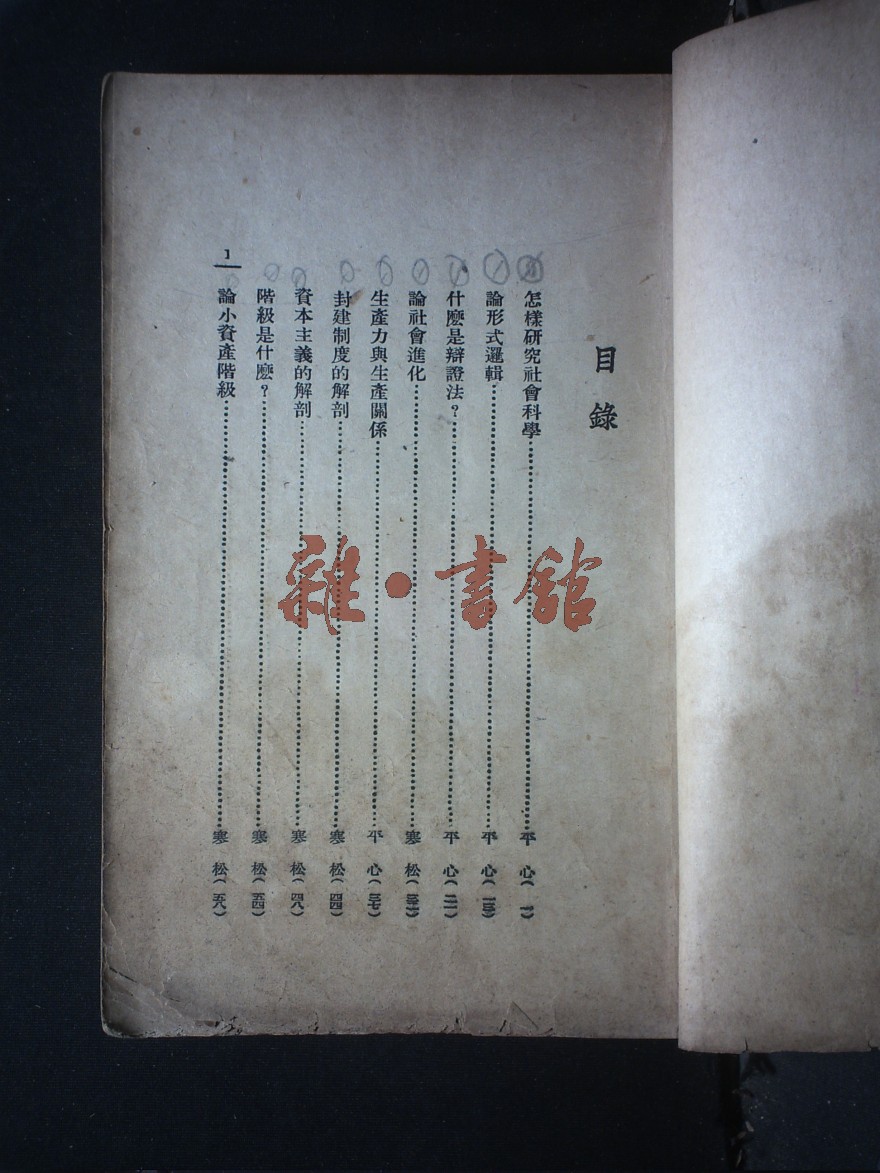 目錄
怎樣研究社會科學⋯⋯平心（一）
論形式邏輯⋯⋯平心（一三）
什麽是辯證法？⋯⋯平心（二一）
論社會進化⋯⋯寒松（三二）
生產力與生產關係⋯⋯平心（三七）
封建制度的解剖⋯⋯寒松（四四）
資本主義的解剖⋯⋯寒松（四八）
階級是什麽？⋯⋯寒松（五四）
論小資產階級⋯⋯寒松（五八）
1
雜·書館